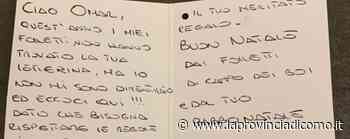 CIAO OMAR,
QUEST'ANNO I MIEI
FOLLETTI NON HANNO
TROVATO LA TUA
LETTERINA, MA IO
NON MI SONO DIMENTICATO
ED ECCOCI QUI!!!
DATO CHE BISOGNA
RISPETTARE LE REGOLE
IL TUO MERITATO
REGALO.
BUON NATALE
DAI FOLLETTI
DI CAPO DEI BOI
E DAL TUO
BABBO NATALE
© www.laprovinciadicomo.it